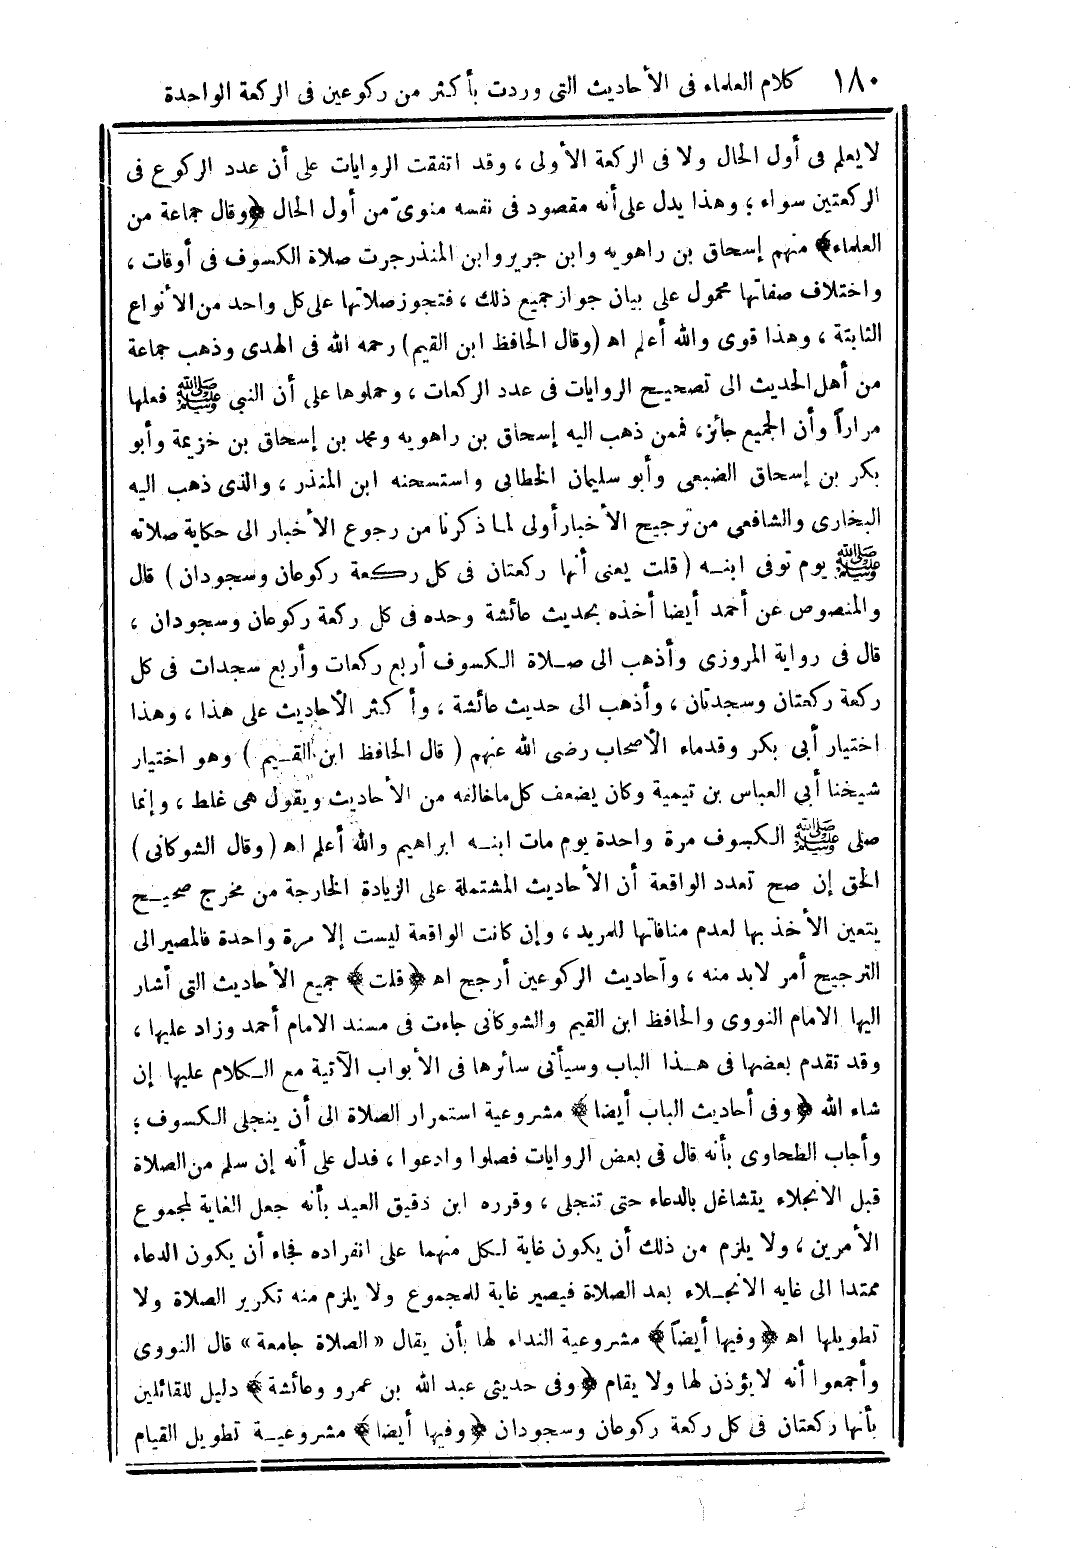 ١٨٠ كلام العلماء فى الأحاديث التى وردت بأكثر من ركوعين فى الركعة الواحدة
لايعلم فى أول الحال ولا فى الركعة الأولى ، وقد اتفقت الروايات على أن عدد الركوع فى
الركعتين سواء ؛ وهذا يدل على أنه مقصود فى نفسه منوىّ من أول الحال ﴿وقال جماعة من
العلماء﴾ منهم إسحاق بن راهويه وابن جرير وابن المنذر جرت صلاة الكسوف فى أوقات ،
واختلاف صفاتها محمول على بيان جواز جميع ذلك ، فتجوز صلاتها على كل واحد من الأنواع
الثابتة ، وهذا قوى والله أعلم اه (وقال الحافظ ابن القيم) رحمه الله فى الهدى وذهب جماعة
من أهل الحديث الى تصحيح الروايات فى عدد الركعات ، وحملوها على أن النبى ﷺ فعلها
مراراً وأن الجميع جائز، فممن ذهب اليه إسحاق بن راهويه ومحمد بن إسحاق بن خزيمة وأبو
بكر بن إسحاق الضبعى وأبو سليمان الخطابى واستسحنه ابن المنذر ، والذى ذهب اليه
البخارى والشافعى من ترجيح الأخبار أولى لما ذكرنا من رجوع الأخبار الى حكاية صلاته
ﷺ يوم توفى ابنه ( قلت يعنى أنها ركعتان فى كل ركعة ركوعان وسجودان ) قال
والمنصوص عن أحمد أيضا أخذه بحديث عائشة وحده فى كل ركعة ركوعان وسجودان ،
قال فى رواية المروزى وأذهب الى صلاة الكسوف أربع ركعات وأربع سجدات فى كل
ركعة ركعتان وسجدتان ، وأذهب الى حديث عائشة ، وأكثر الأحاديث على هذا ، وهذا
اختيار أبى بكر وقدماء الأصحاب رضى الله عنهم ( قال الحافظ ابن القيم ) وهو اختيار
شيخنا أبى العباس بن تيمية وكان يضعف كل ماخالفه من الأحاديث ويقول هى غلط ، وإنما
صلى ﷺ الكسوف مرة واحدة يوم مات ابنه ابراهيم والله أعلم اه ( وقال الشوكانى )
الحق إن صح تعدد الواقعة أن الأحاديث المشتملة على الزيادة الخارجة من مخرج صحيح
يتعين الأخذ بها لعدم منافاتها للمزيد ، وإن كانت الواقعة ليست إلا مرة واحدة فالمصير الى
الترجيح أمر لابد منه ، وأحاديث الركوعين أرجح اه ﴿قلت﴾ جميع الأحاديث التى أشار
اليها الامام النووى والحافظ ابن القيم والشوكانى جاءت فى مسند الامام أحمد وزاد عليها ،
وقد تقدم بعضها فى هذا الباب وسيأتى سائرها فى الأبواب الآتية مع الكلام عليها إن
شاء الله ﴿وفى أحاديث الباب أيضا﴾ مشروعية استمرار الصلاة الى أن ينجلى الكسوف ؛
وأجاب الطحاوى بأنه قال فى بعض الروايات فصلوا وادعوا ، فدل على أنه إن سلم من الصلاة
قبل الانجلاء يتشاغل بالدعاء حتى تنجلى ، وقرره ابن دقيق العيد بأنه جعل الغاية لمجموع
الأمرين ، ولا يلزم من ذلك أن يكون غاية لكل منهما على انفراده فجاء أن يكون الدعاء
ممتدا الى غايه الانجلاء بعد الصلاة فيصير غاية للمجموع ولا يلزم منه تكرير الصلاة ولا
تطويلها اه ﴿وفيها أيضاً﴾ مشروعية النداء لها بأن يقال « الصلاة جامعة » قال النووى
وأجمعوا أنه لايؤذن لها ولا يقام ﴿وفى حديثى عبد الله بن عمرو وعائشة﴾ دليل للقائلين
بأنها ركعتان فى كل ركعة ركوعان وسجودان ﴿وفيها أيضا﴾ مشروعية تطويل القيام